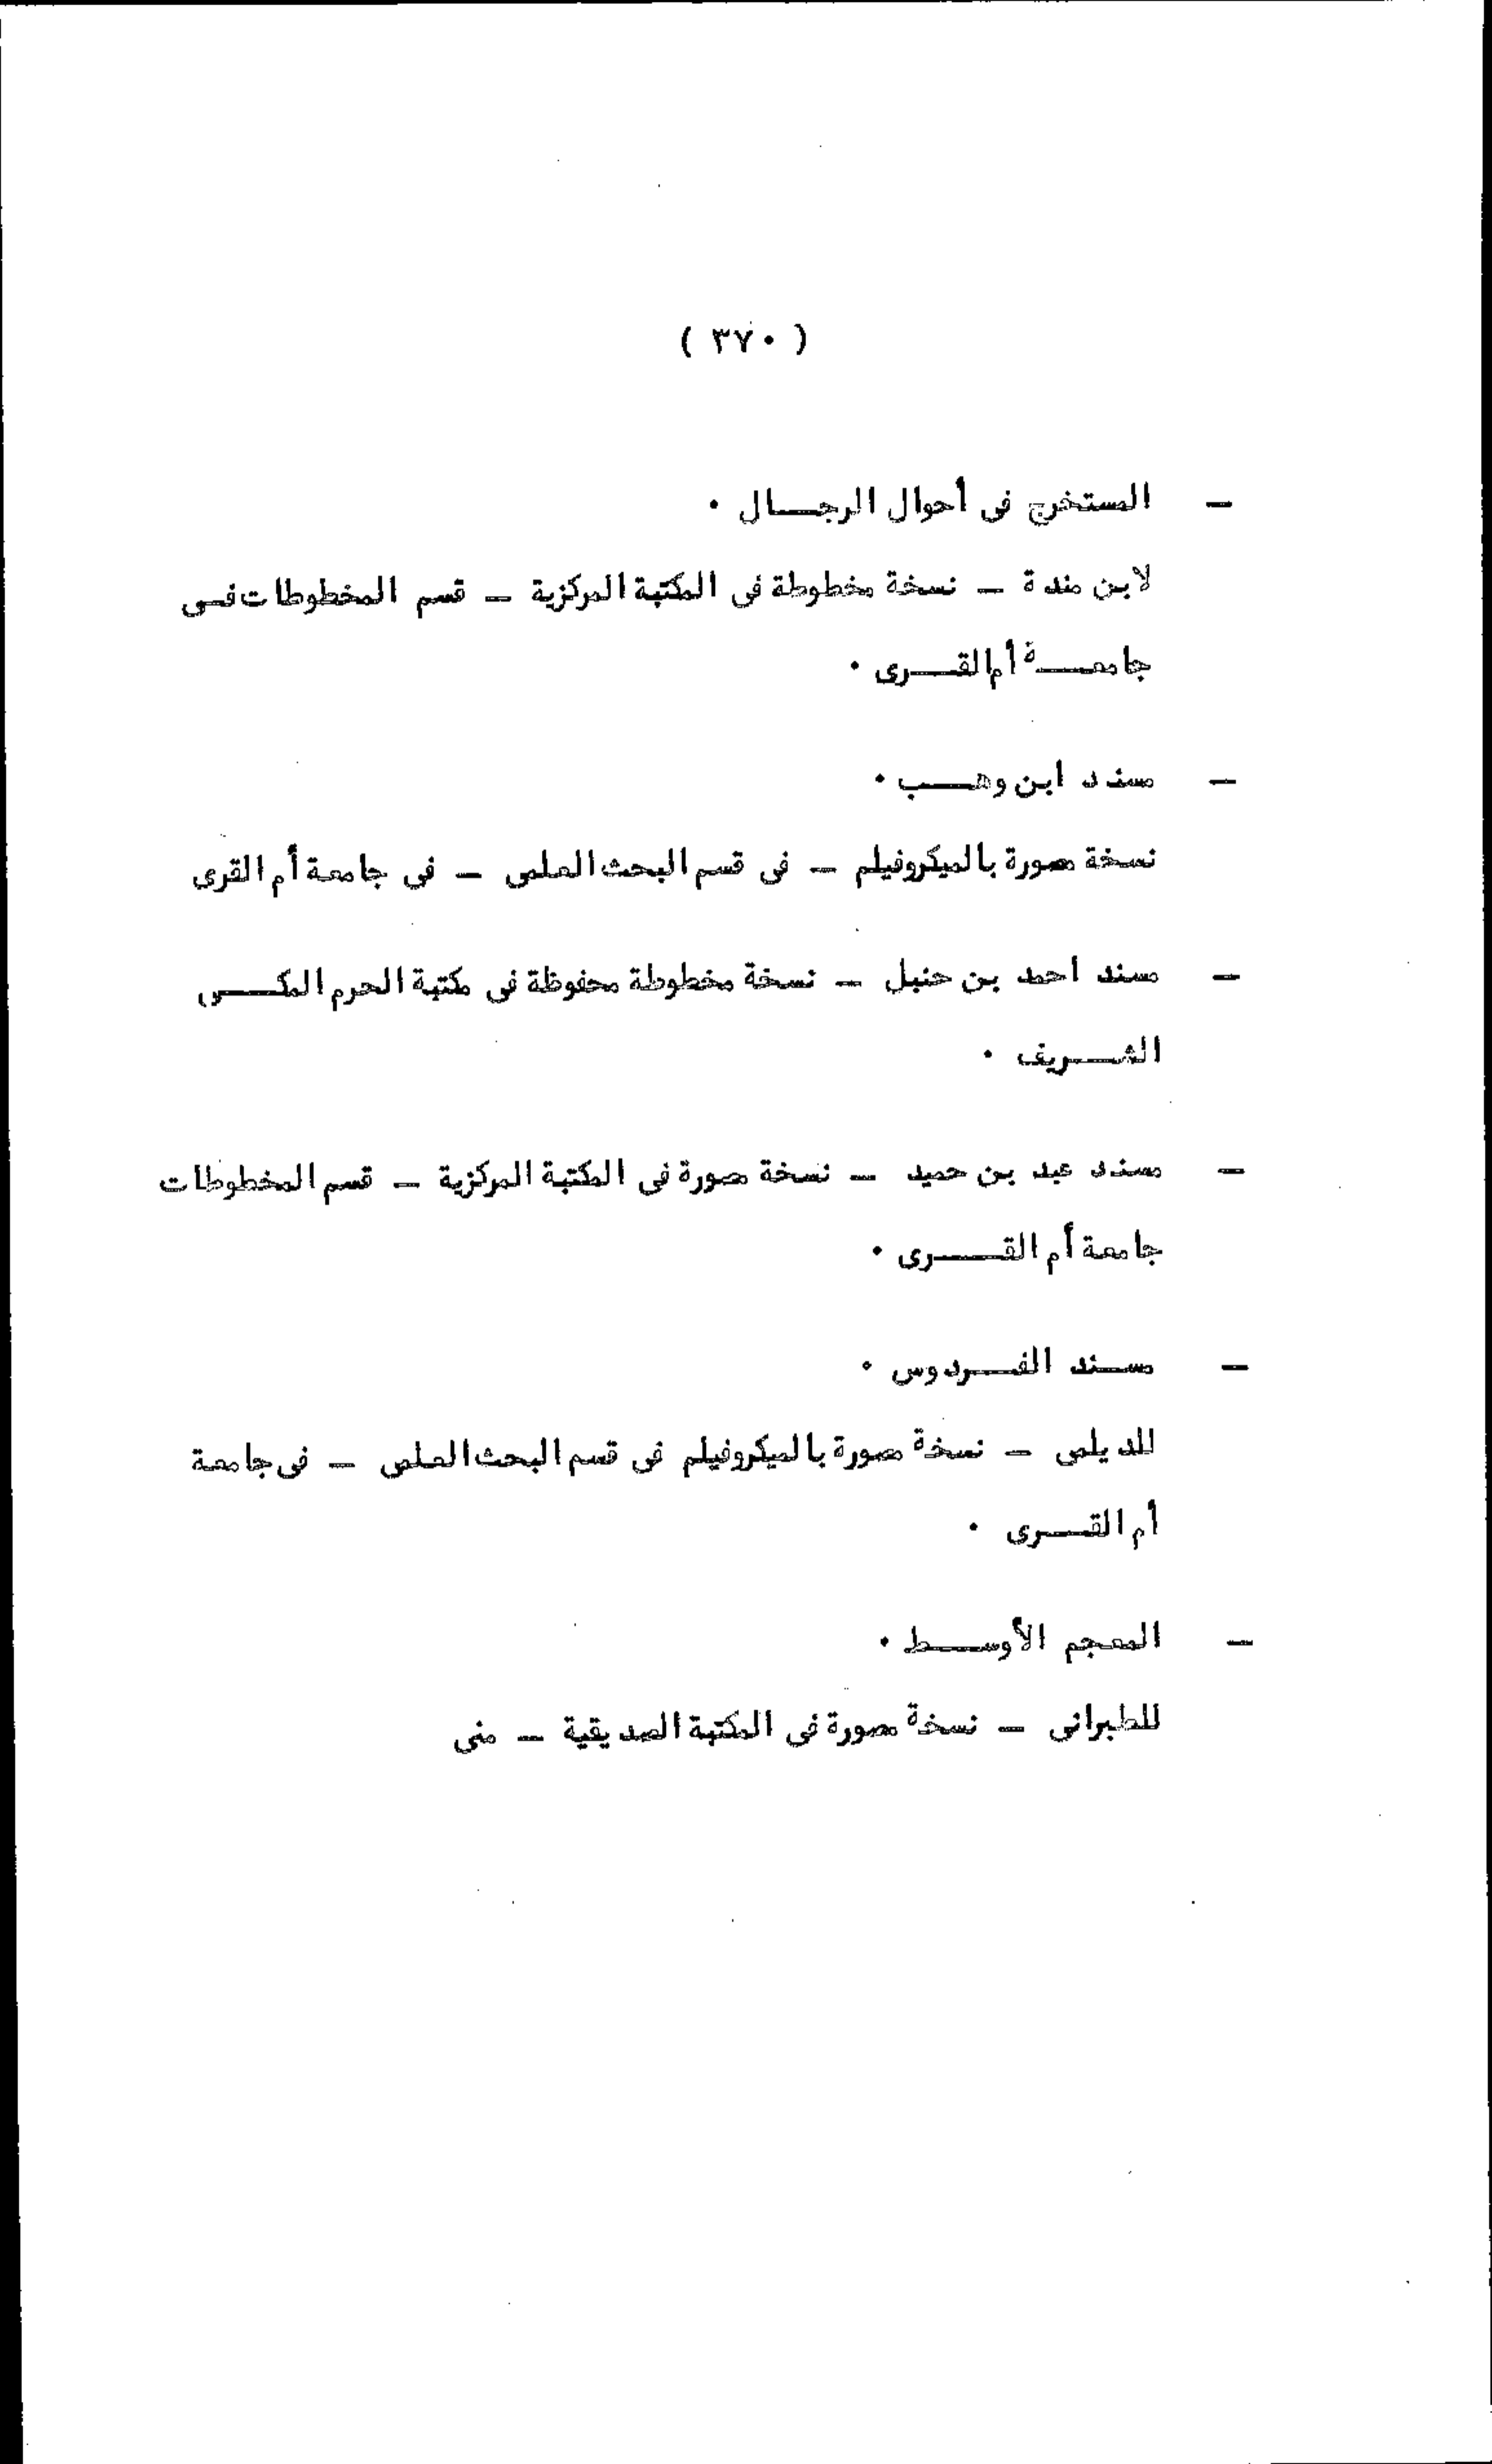 ( ٣٧٠ )
— المستخرج فى أحوال الرجـــال .
لابن مندة — نسخة مخطوطة فى المكتبة المركزية — قسم المخطوطات فـى
جامعـــة أم القـــرى .
— مسند ابن وهـــب .
نسخة مصورة بالميكروفيلم — فى قسم البحث العلمى — فى جامعة أم القرى
— مسند احمد بن حنبل — نسخة مخطوطة محفوظة فى مكتبة الحرم المكـــى
الشـــريف .
— مسند عبد بن حميد — نسخة مصورة فى المكتبة المركزية — قسم المخطوطات
جامعة أم القـــرى .
— مســند الفـــردوس .
للديلمى — نسخة مصورة بالميكروفيلم فى قسم البحث العلمى — فى جامعة
أم القـــرى .
— المعجم الأوســـط .
للطبرانى — نسخة مصورة فى المكتبة الصديقية — منى